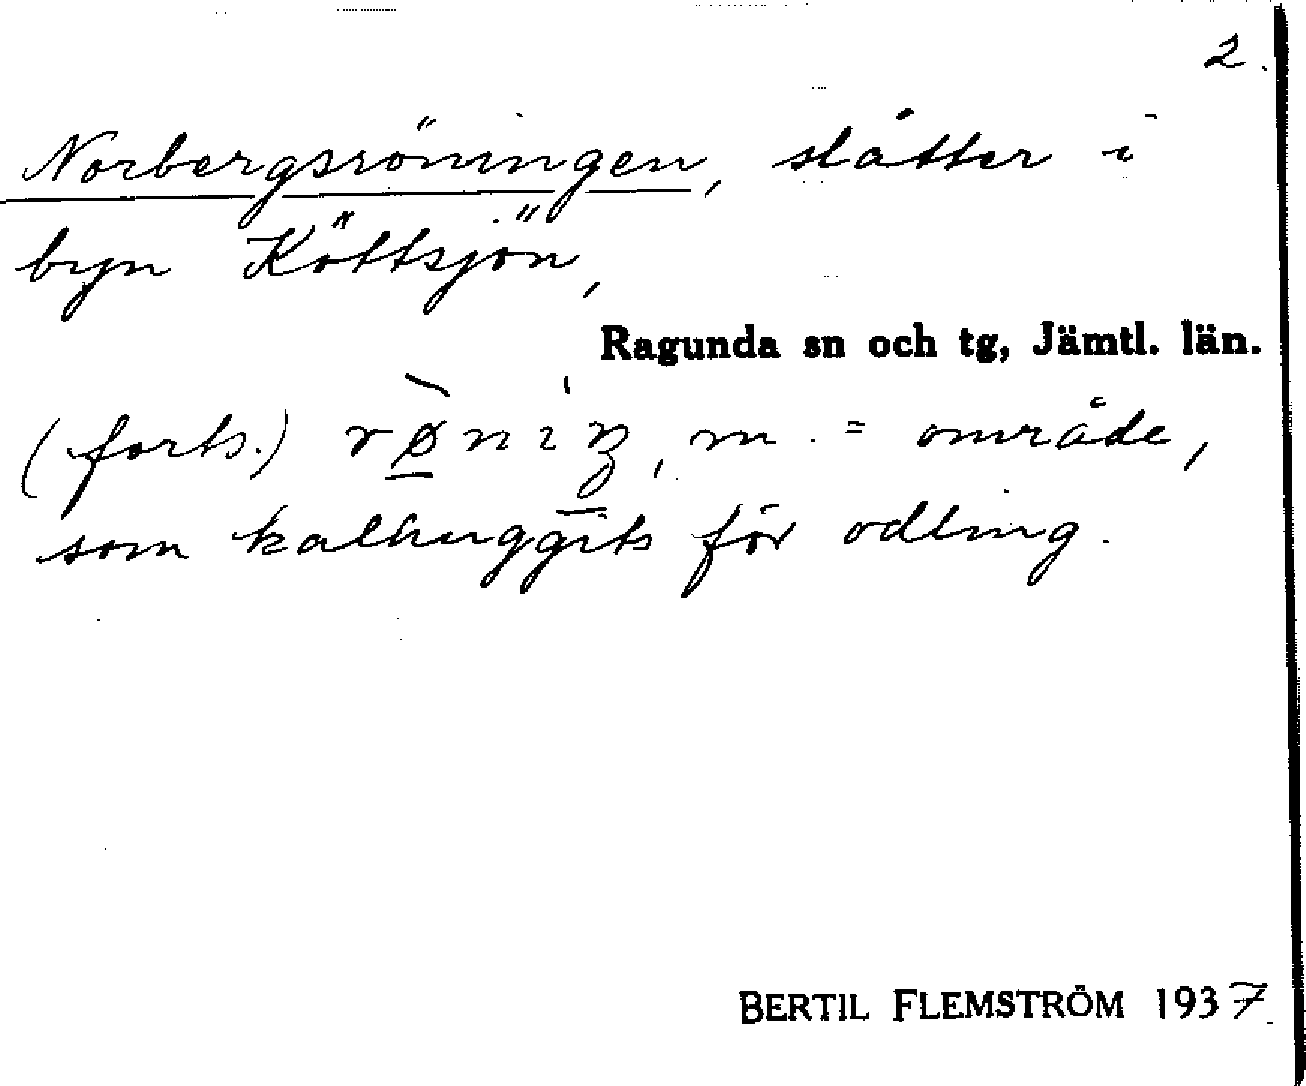 2.
Norbergsröningen, slåtter i
byn Köttsjön,
Ragunda sn och tg, Jämtl. län.
(forts.) rø̲̀niŋ, m. = område,
som kalhuggits för odling.
BERTIL FLEMSTRÖM 1937